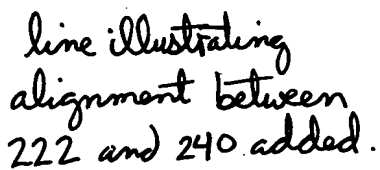 line illustrating
alignment between
222 and 240 added.